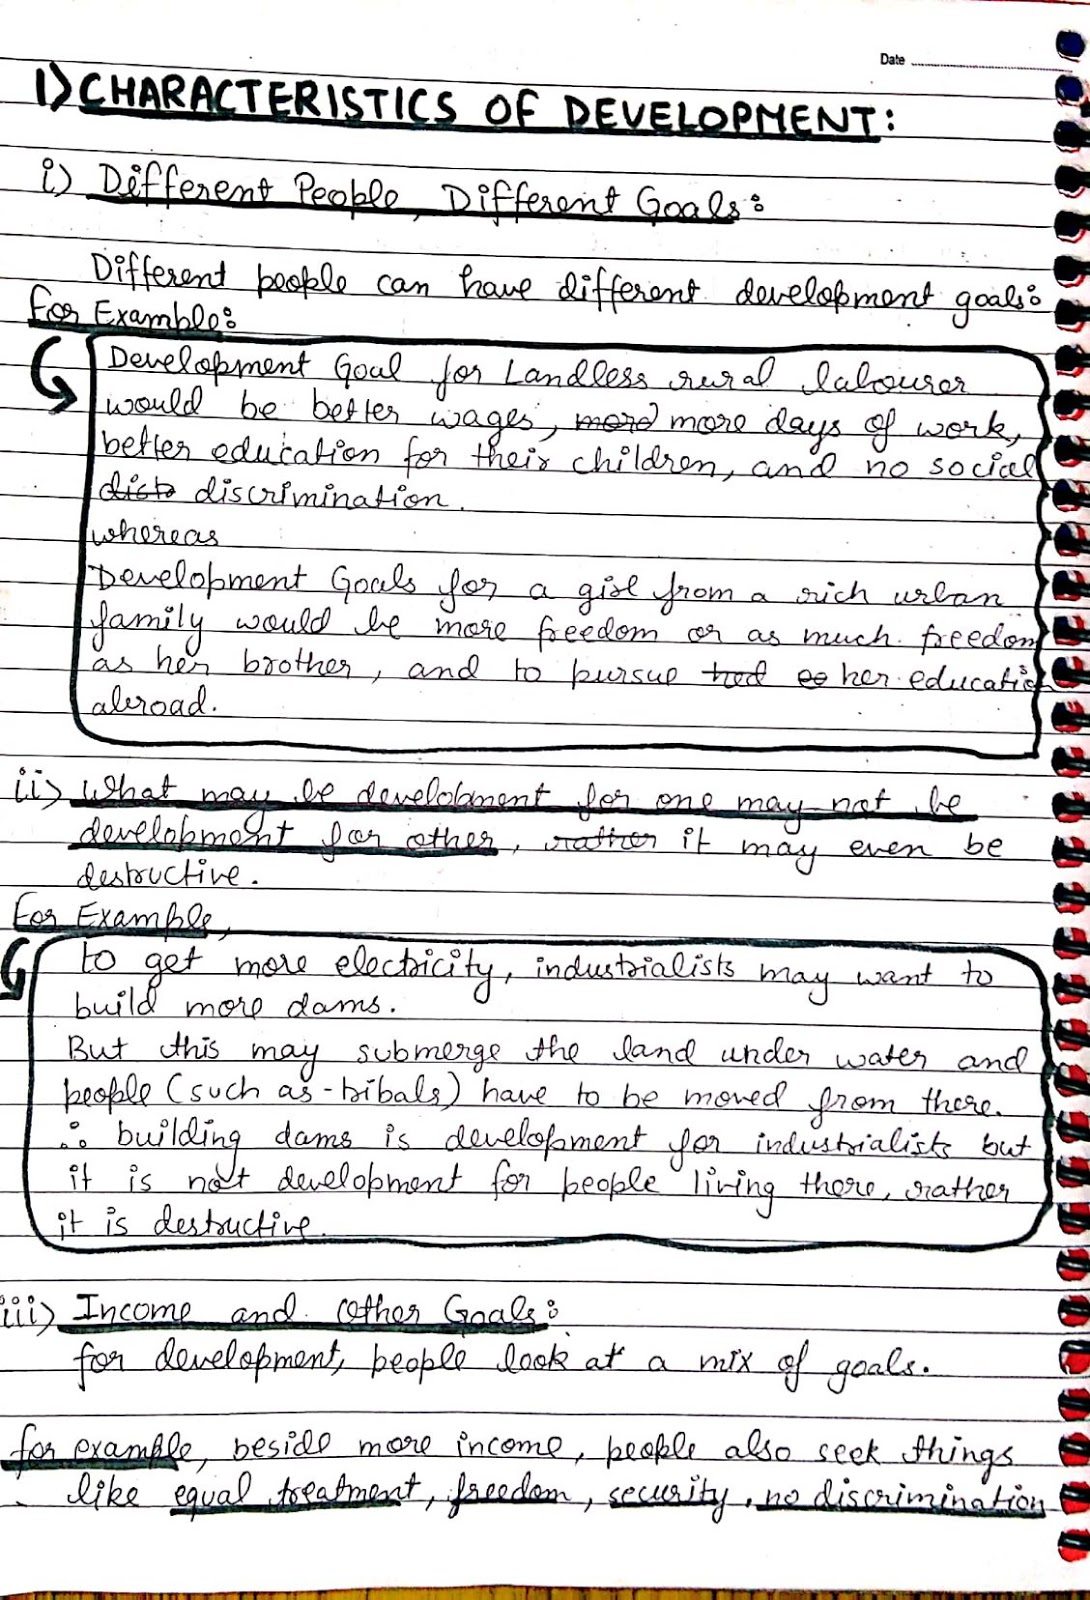 Date
1) CHARACTERISTICS OF DEVELOPMENT:
i) Different People, Different Goals:
Different people can have different development goals:
For Example:
Development Goal for Landless rural labourer
would be better wages, more more days of work,
better education for their children, and no social
discrimination.
whereas
Development Goals for a girl from a rich urban
family would be more freedom or as much freedom
as her brother, and to pursue her education
abroad.
ii) What may be development for one may not be
development for other, rather it may even be
destructive.
For Example,
to get more electricity, industrialists may want to
build more dams.
But this may submerge the land under water and
people (such as-tribals) have to be moved from there.
∴ building dams is development for industrialists but
it is not development for people living there, rather
it is destructive.
iii) Income and Other Goals:
for development, people look at a mix of goals.
for example, beside more income, people also seek things
like equal treatment, freedom, security, no discrimination